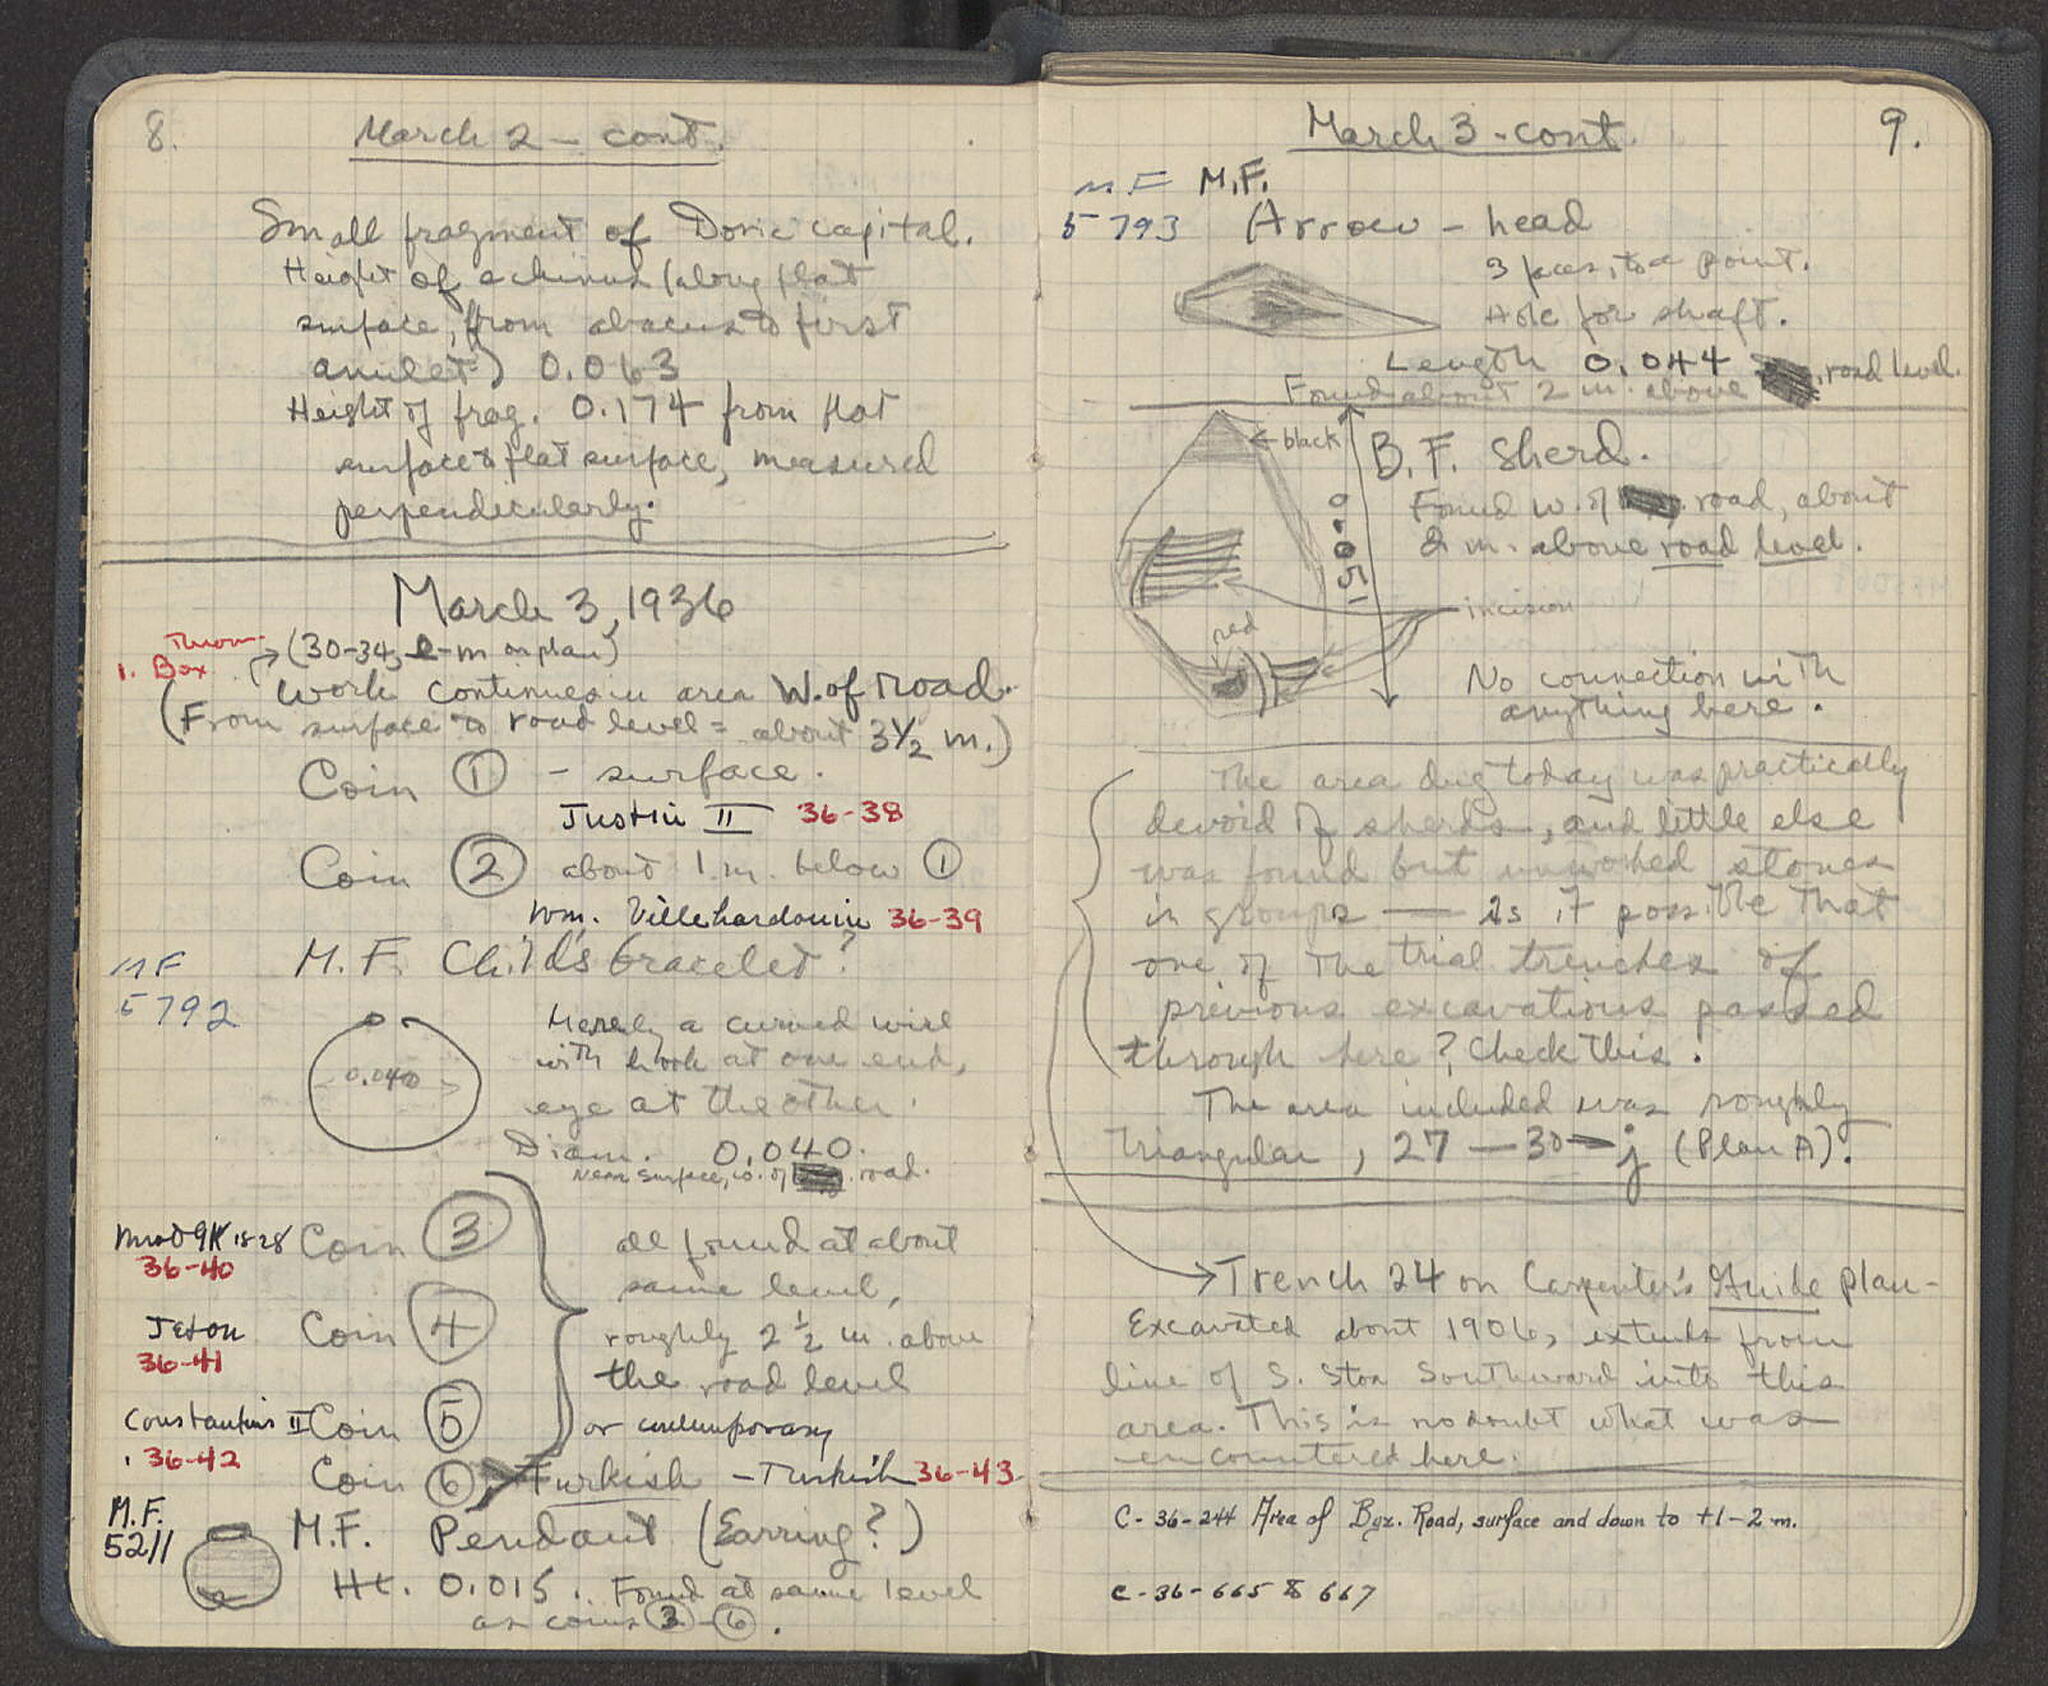 8.
March 2 - cont.
Small fragment of Doric capital.
Height of echinus (along flat
surface, from abacus to first
anulet) 0.063
Height of frag. 0.174 from flat
surface to flat surface, measured
perpendicularly.
March 3, 1936
1. Box
(30-34, e-m on plan)
Work continues in area W. of road.
(From surface to road level = about 3½ m.)
Coin ① - surface.
Justin II 36-38
Coin ② about 1 m. below ①
Wm. Villehardouin 36-39
MF
5792
M.F. Child's bracelet?
0.040
Merely a curved wire
with hook at one end,
eye at the other.
Diam. 0.040.
Near surface, w. of road.
36-40
Coin ③
Jeton
36-41
Coin ④
Constantius II
36-42
Coin ⑤
all found at about
same level,
roughly 2 ½ m. above
the road level
or contemporary
Coin ⑥ Turkish - Turkish 36-43
M.F.
5211
M.F. Pendant (Earring?)
Ht. 0.015. Found at same level
as coins ③-⑥.
March 3 - cont.
9.
MF
5793
M.F.
Arrow - head
3 faces, to a point.
Hole for shaft.
Length 0.044
Found about 2 m. above road level.
black
0.051
B.F. sherd.
Found w. of road, about
2 m. above road level.
incision
red
No connection with
anything here.
The area dug today was practically
devoid of sherds, and little else
was found but unworked stones
in groups — Is it possible that
one of the trial trenches of
previous excavations passed
through here? Check this.
The area included was roughly
triangular, 27 — 30 — j (Plan A).
Trench 24 on Carpenter's Guide plan -
Excavated about 1906, extends from
line of S. Stoa Southward into this
area. This is no doubt what was
encountered here.
C-36-244 Area of Byz. Road, surface and down to +1-2 m.
C-36-665 & 667